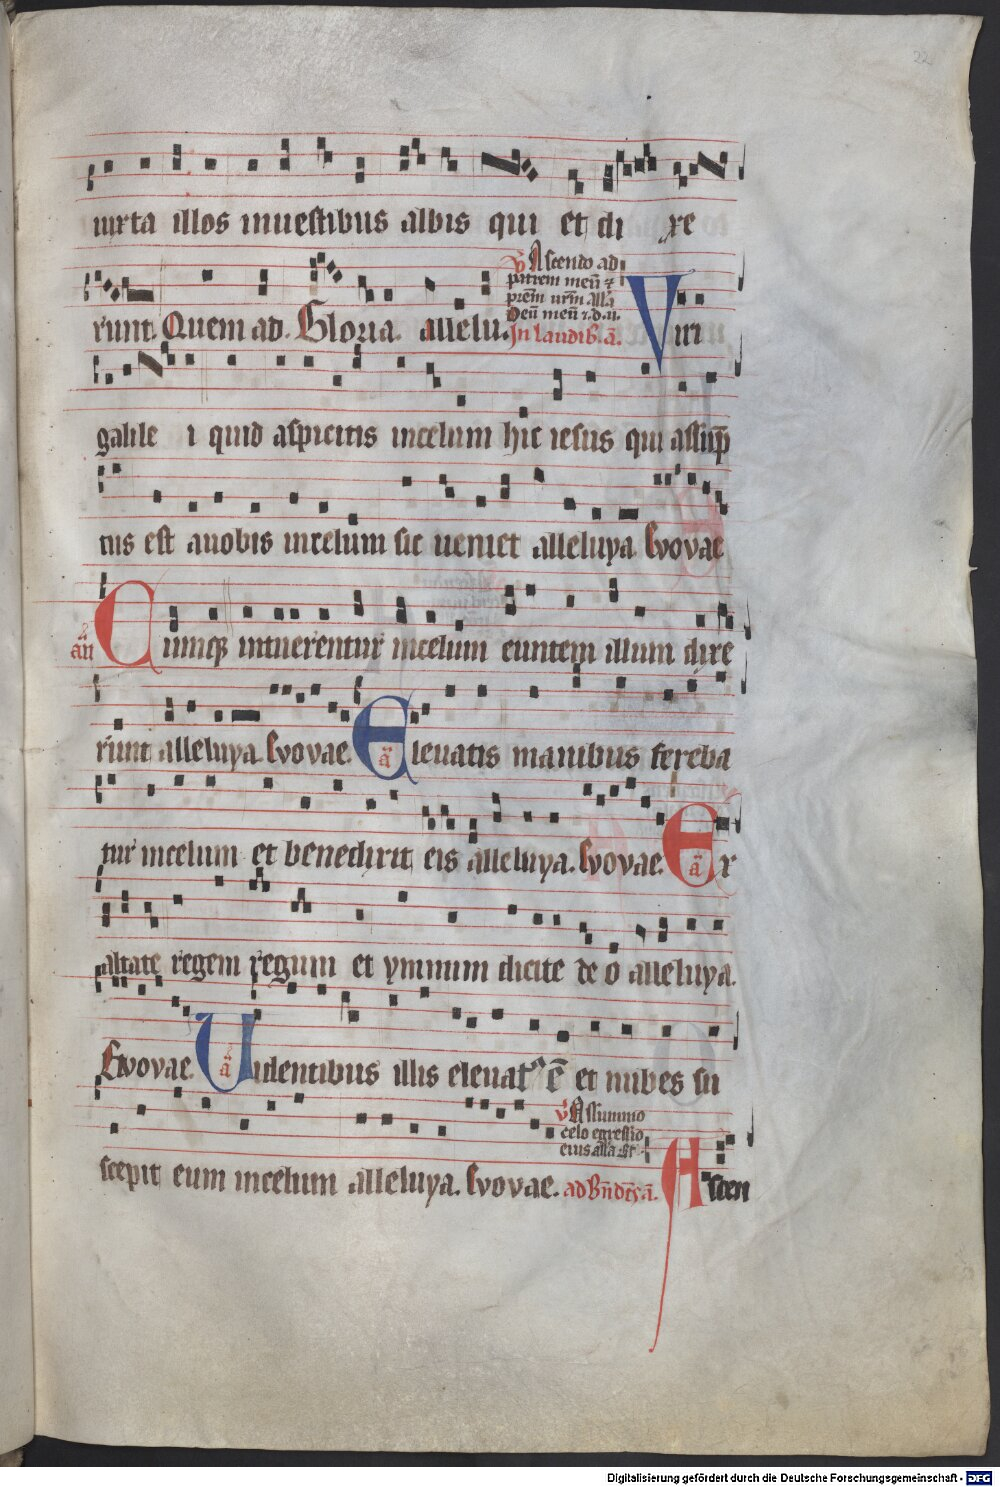 22
iuxta illos inuestibus albis qui et di xe
runt. Quem ad. Gloria. allelu.
V Ascendo ad
patrem meū ⁊
prēm urm̄ allā
Deū meū ⁊.d.ū.
In laudib. ā.
Viri
galile i quid aspicitis incelum hic iesus qui assūp̄
tus est auobis incelum sic ueniet alleluya. Evovae
añ Cumq; intuerentur incelum euntem illum dixe
runt alleluya. Evovae. ā Eleuatis manibus fereba
tur incelum et benedixit eis alleluya. Evovae. ā Ex
altate regem regum et ymnum dicite deo alleluya.
Evovae. ā Uidentibus illis eleuat᷑ ē et nubes su
scepit eum incelum alleluya. Evovae.
V Assummo
celo egressio
eius allā
ad Bn̄dc̄s ā. Ascen
Digitalisierung gefördert durch die Deutsche Forschungsgemeinschaft - DFG